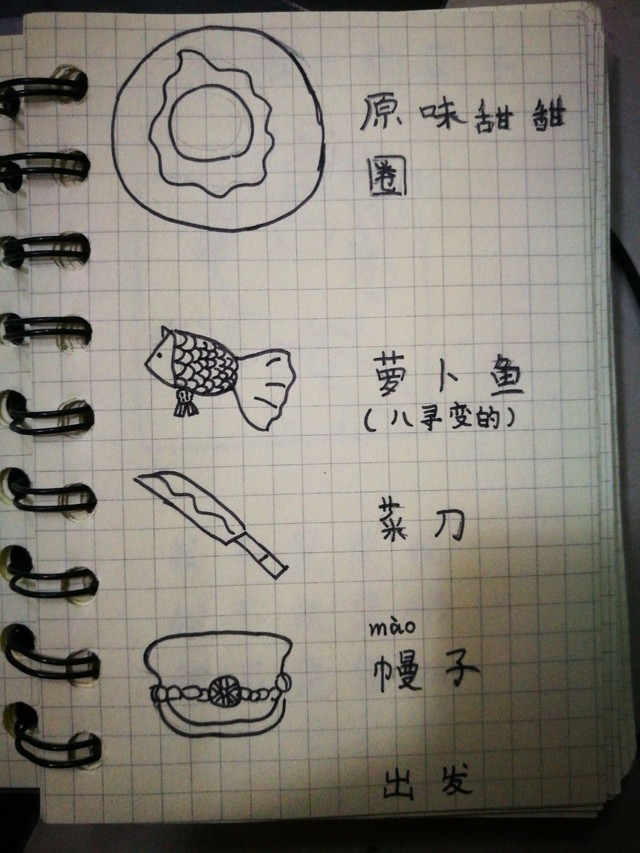 原味甜甜
圈
萝卜鱼
(八寻变的)
菜刀
mào
幔子
出发